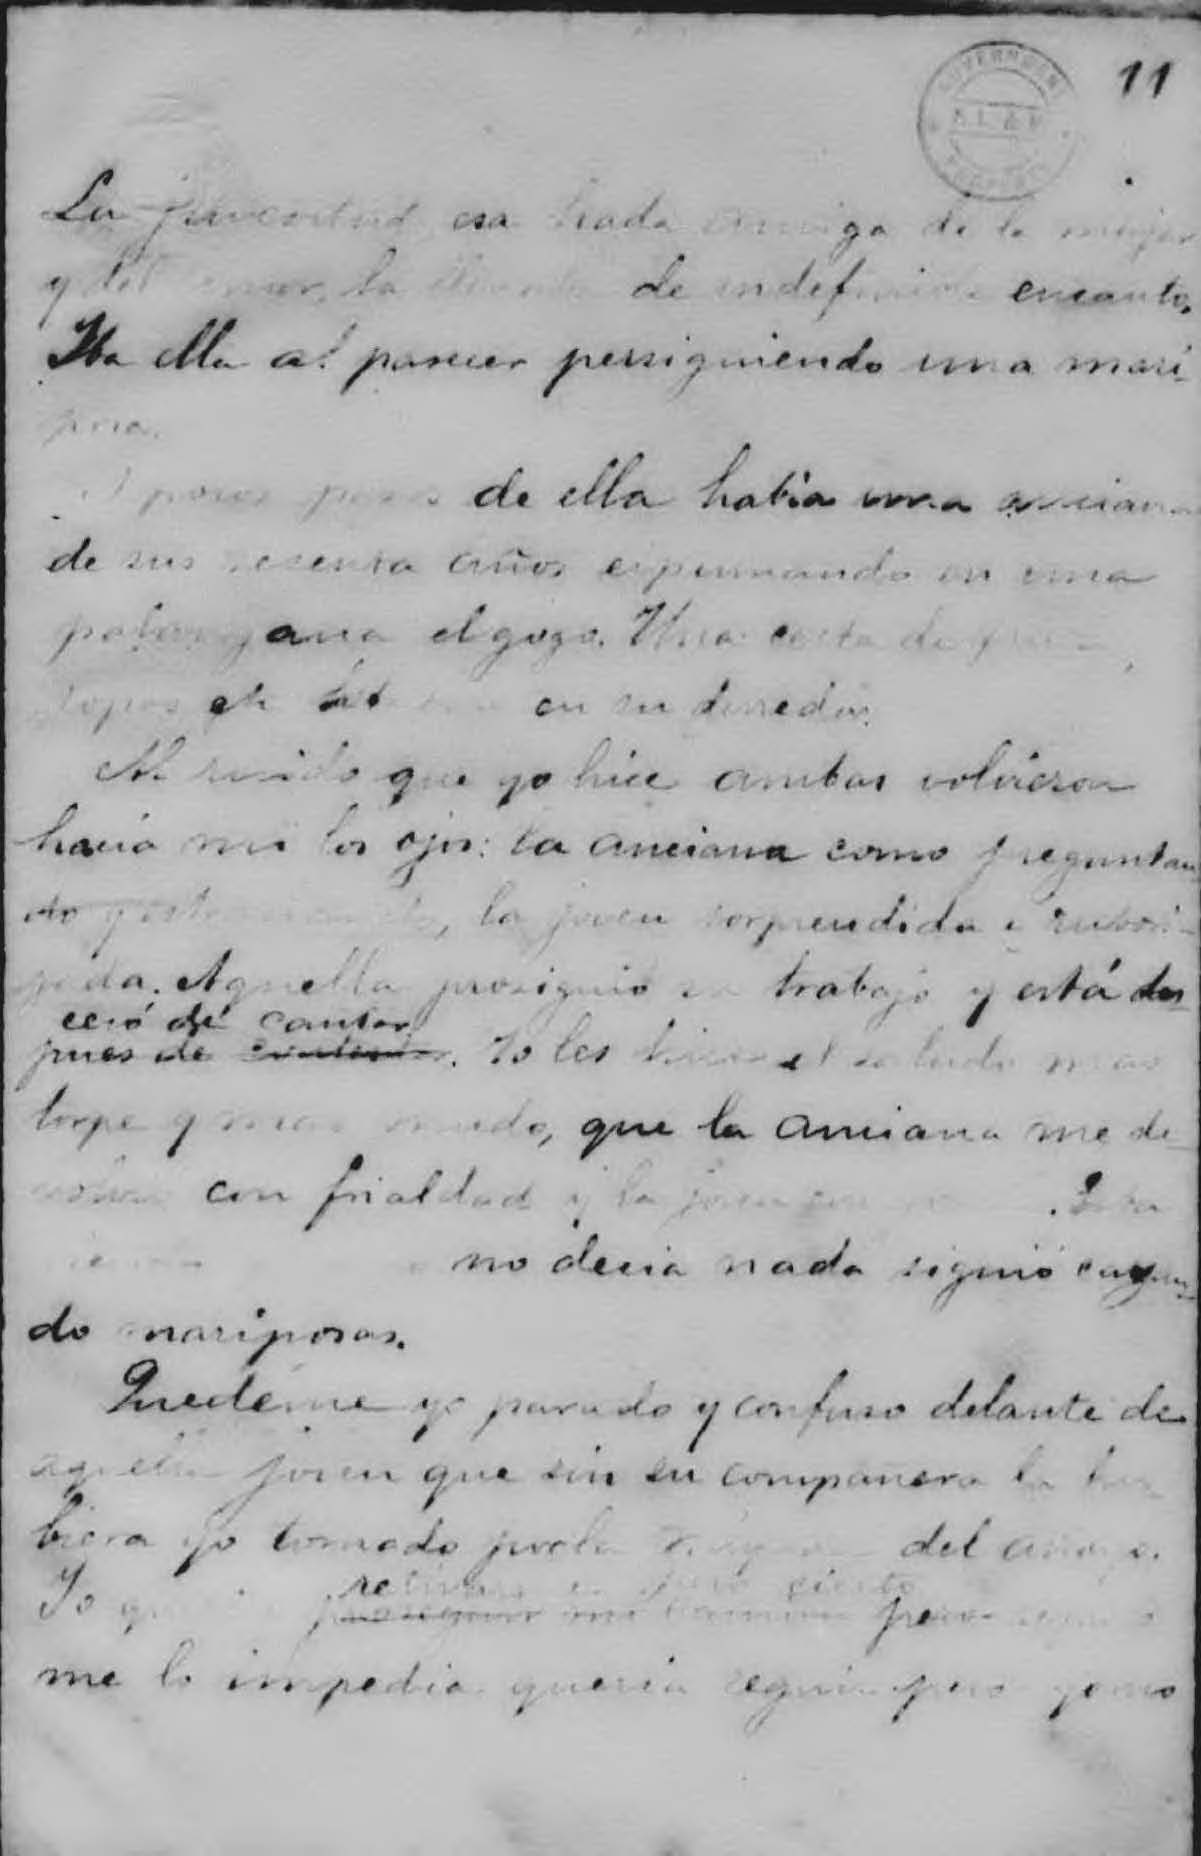 11
La juventud esa hada amiga de la mujer
y del amor, la de indefinido encanto.
Iba ella al parecer persiguiendo una mari-
posa.
A pocos pasos de ella había una anciana
de sus sesenta años espumando en una
palangana el gogo. Una cesta de
en en su derredor.
Al ruido que yo hice ambas volvieron
hacia mi los ojos: la anciana como preguntan
do y , la joven sorprendida i rubori-
zada. Aquella prosiguió su trabajo y está des
cesó de cantar
pues de . Yo les hice el saludo mas
torpe y mas mudo, que la anciana me de-
con frialdad y la joven con . Esta
no decia nada siguió cogien-
do mariposas.
Quedéme yo parado y confuso delante de
aquella joven que sin su compañera la hu-
biera yo tomado por la del amor.
retirarme cierto
Yo proseguir mi camino pero
me lo impedia queria seguir pero yo no